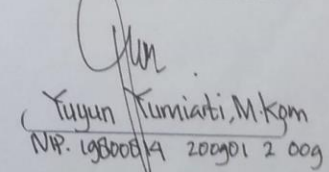 Yuyun Kurniarti, M.Kom
NIP. 19800814 200901 2 009